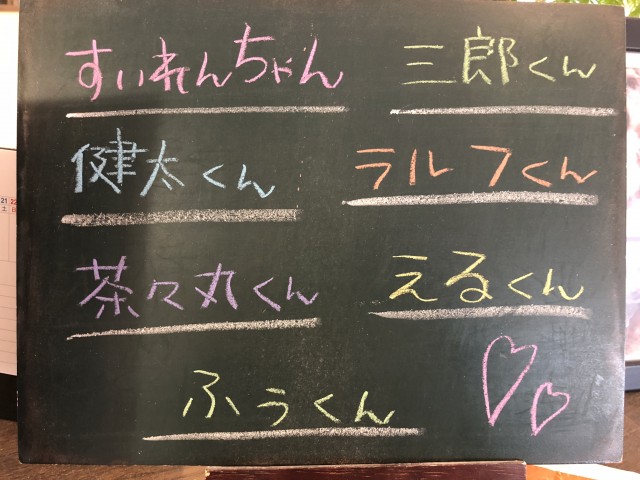 すいれんちゃん
三郎くん
健太くん
ラルフくん
茶々丸くん
えるくん
ふぅくん
21 22
土 日